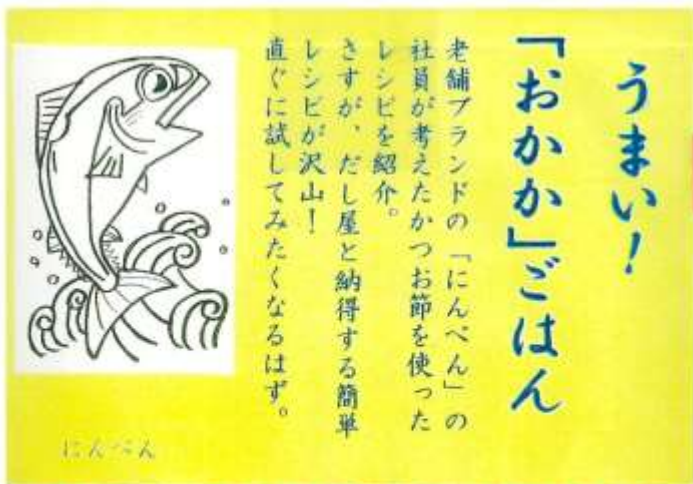 うまい!
「おかか」ごはん
老舗ブランドの「にんべん」の
社員が考えたかつお節を使った
レシピを紹介。
さすが、だし屋と納得する簡単
レシピが沢山!
直ぐに試してみたくなるはず。
にんべん